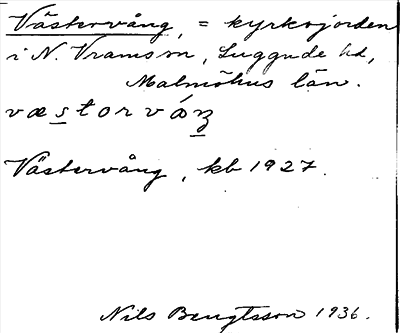 Västervång, = kyrkojorden
i N. Vramsn, Luggude hd,
Malmöhus län.
Västervång, kb 1927.
Nils Bengtsson 1936.